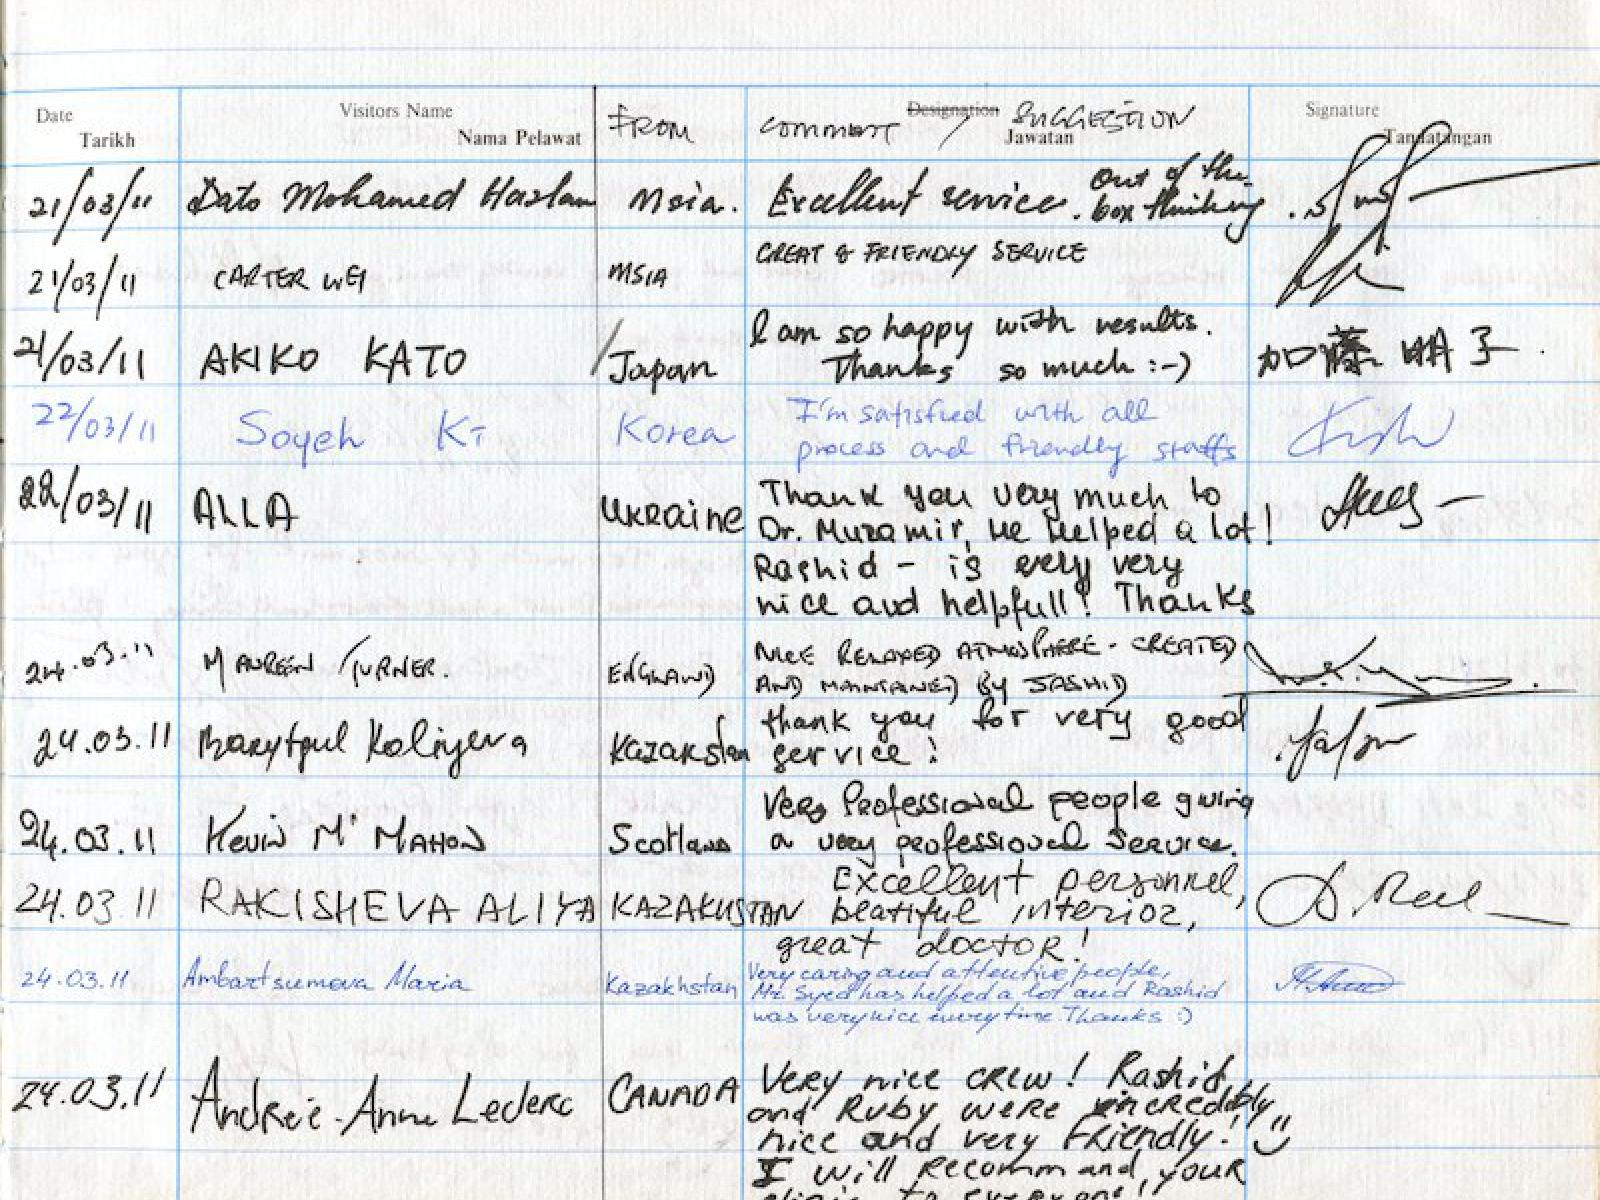 Date Visitors Name FROM Designation SUGGESTION Signature
Tarikh Nama Pelawat COMMENT / Jawatan Tandatangan
21/03/11 Dato Mohamed Hazlan Msia. Excellent service. out of the
box thinking
21/03/11 CARTER WEI MSIA GREAT & FRIENDLY SERVICE
21/03/11 AKIKO KATO Japan I am so happy with results.
Thanks so much :-) 加藤 明子
22/03/11 Soyeh Ki Korea I'm satisfied with all
process and friendly staffs
22/03/11 ALLA Ukraine Thank you very much to
Dr. Muzamir, he helped a lot!
Rashid - is very very
nice and helpfull! Thanks
24.03.11 MAUREEN TURNER. ENGLAND NICE RELAXED ATMOSPHERE - CREATED
AND MAINTAINED BY JASHID
24.03.11 Koliyeva Kazakstan thank you for very good
service!
24.03.11 Kevin McMahon Scotland Very Professional people giving
a very professional service.
24.03 11 RAKISHEVA ALIYA KAZAKHSTAN Excellent personnel,
beatiful interior,
great doctor!
24.03.11 Ambartsumova Maria Kazakhstan Very caring and attentive people,
Mr. Syed has helped a lot and Rashid
was very nice every time. Thanks :)
24.03.11 Andreé-Anne Leclerc CANADA Very nice crew! Rashid
and Ruby were incredibly
nice and very friendly!
I will recommand your
clinic to everyone!